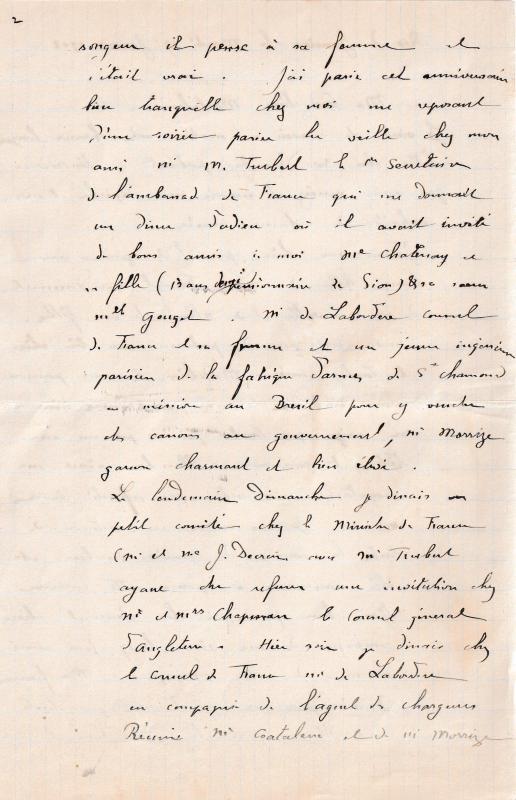 2
songeur il pense à sa femme et
c'était vrai. J'ai passé cet anniversaire
bien tranquille chez moi me reposant
d'une soirée passée la veille chez mon
ami Mr M. Turbert le 1er Secrétaire
de l'ambassade de France qui me donnait
un diner d'adieu où il avait invité
de bons amis à moi Me Chatenay et
sa fille (13 ans pensionnaire de Sion) & sa soeur
Melle Gouget. Mr de Labordère consul
de France et sa femme et un jeune ingénieur
parisien de la fabrique d'armes de St Chamond
en mission au Brésil pour y vendre
des canons au gouvernement, Mr Morrize
garçon charmant et bien élevé.
Le lendemain Dimanche je dinais en
petit comité chez le Ministre de France
(Mr et Me J. Decrais avec Mr Turbert
ayant du refuser une invitation chez
Mr et Mrs Chapman le Consul général
d'Angleterre. Hier soir je dinais chez
le Consul de France Mr de Labordère
en compagnie de l'agent des Chargeurs
Réunis Mr Coatalem et de Mr Morrize